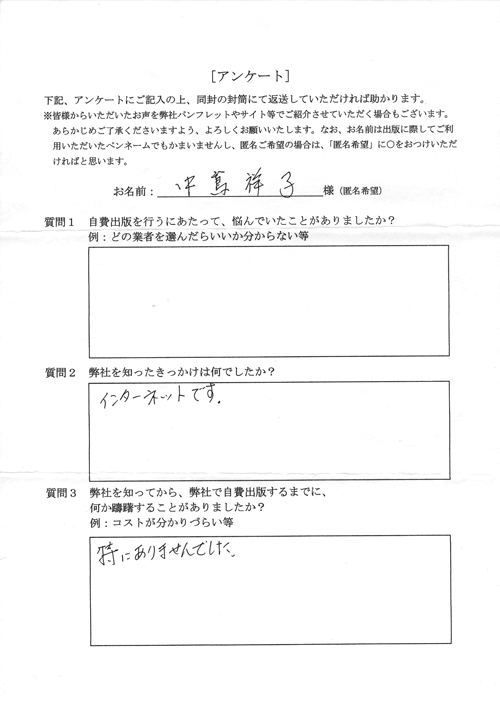 [アンケート]
下記、アンケートにご記入の上、同封の封筒にて返送していただければ助かります。
※皆様からいただいたお声を弊社パンフレットやサイト等でご紹介させていただく場合もございます。
あらかじめご了承くださいますよう、よろしくお願いいたします。なお、お名前は出版に際してご利
用いただいたペンネームでもかまいませんし、匿名ご希望の場合は、「匿名希望」に○をおつけいただ
ければと思います。
お名前：中蔦 祥子 様（匿名希望）
質問１ 自費出版を行うにあたって、悩んでいたことがありましたか？
例：どの業者を選んだらいいか分からない等
質問２ 弊社を知ったきっかけは何でしたか？
インターネットです.
質問３ 弊社を知ってから、弊社で自費出版するまでに、
何か躊躇することがありましたか？
例：コストが分かりづらい等
特にありませんでした.